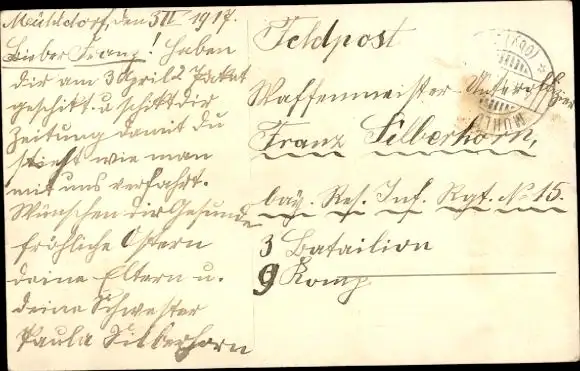 Mühldorf, den 3 IV 1917.
Lieber Franz! Haben
dir am 3 April 2 Packet
geschikt. u schikt dir
Zeitung damit du
sieht wie man
mit uns verfährt.
Wünschen dir Gesunde
fröhliche Ostern
deine Eltern u.
deine Schwester
Paula Silberhorn
Feldpost
Waffenmeister-Unteroffizier
Franz Silberhorn,
bay. Res. Inf. Rgt. No 15.
3 Batailion
9 Komp